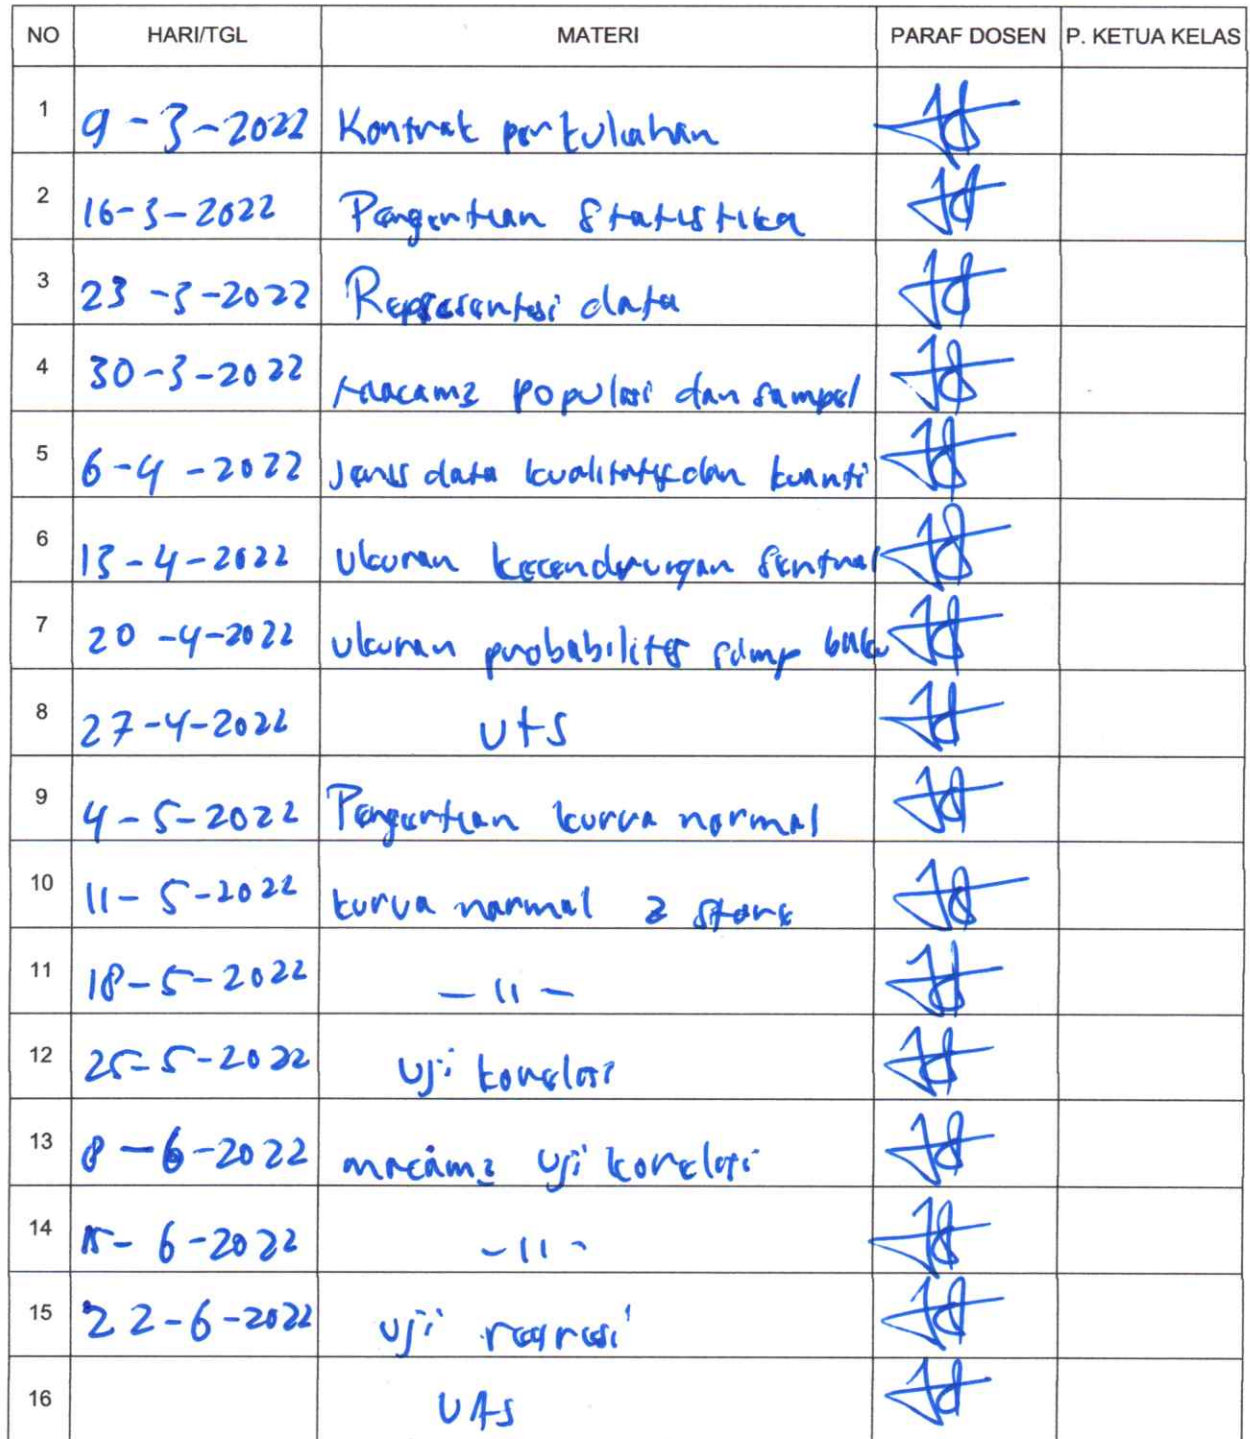 NO HARI/TGL MATERI PARAF DOSEN P. KETUA KELAS
1 9-3-2022 Kontrak perkuliahan
2 16-3-2022 Pengertian Statistika
3 23-3-2022 Representasi data
4 30-3-2022 Macam2 populasi dan sampel
5 6-4-2022 Jenis data kualitatif dan kuanti
6 13-4-2022 Ukuran kecenderungan sentral
7 20-4-2022 Ukuran probabilitas simp baku
8 27-4-2022 UtS
9 4-5-2022 Pengertian kurva normal
10 11-5-2022 kurva normal z
11 18-5-2022 - 11 -
12 25-5-2022 Uji korelasi
13 8-6-2022 macam2 Uji korelasi
14 15-6-2022 - 11 -
15 22-6-2022 Uji regresi
16 UAS